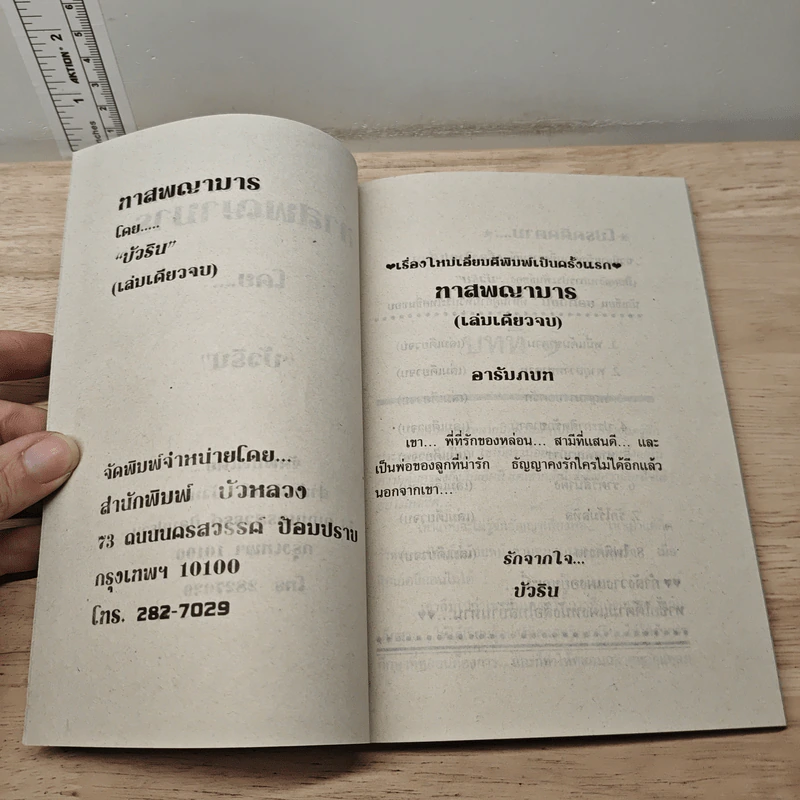 ทาสพญามาร
โดย.....
“บัวริน”
(เล่มเดียวจบ)
จัดพิมพ์จำหน่ายโดย...
สำนักพิมพ์ บัวหลวง
73 ถนนนครสวรรค์ ป้อมปราบ
กรุงเทพฯ 10100
โทร. 282-7029
❤เรื่องใหม่เอี่ยมตีพิมพ์เป็นครั้งแรก❤
ทาสพญามาร
(เล่มเดียวจบ)
อารัมภบท
เขา... พี่ที่รักของหล่อน... สามีที่แสนดี... และ
เป็นพ่อของลูกที่น่ารัก ธัญญาคงรักใครไม่ได้อีกแล้ว
นอกจากเขา...
รักจากใจ...
บัวริน
AKTION
inches
1
2
1
2
3
4
5
6